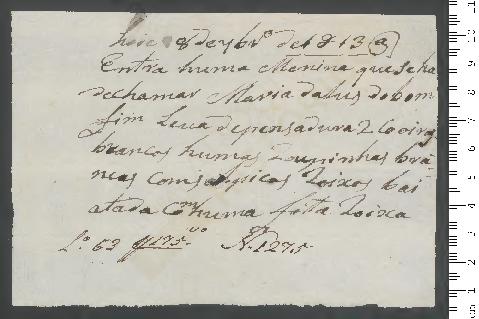 hoie 8 de 7bro de 1813
Entra huma Menina que se ha
de chamar Maria da Lus do bom
fim Leva dependadura 2 Cooiros
brancos humas Roupinhas brã
ncas com salpicos Roixos
atada Com huma fita Roixa
Lo 63 f 175 No 1275